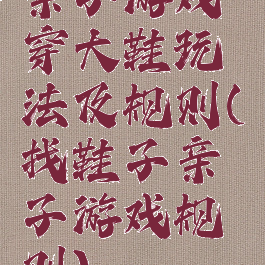 亲子游戏
穿大鞋玩
法及规则(
找鞋子亲
子游戏规
则)